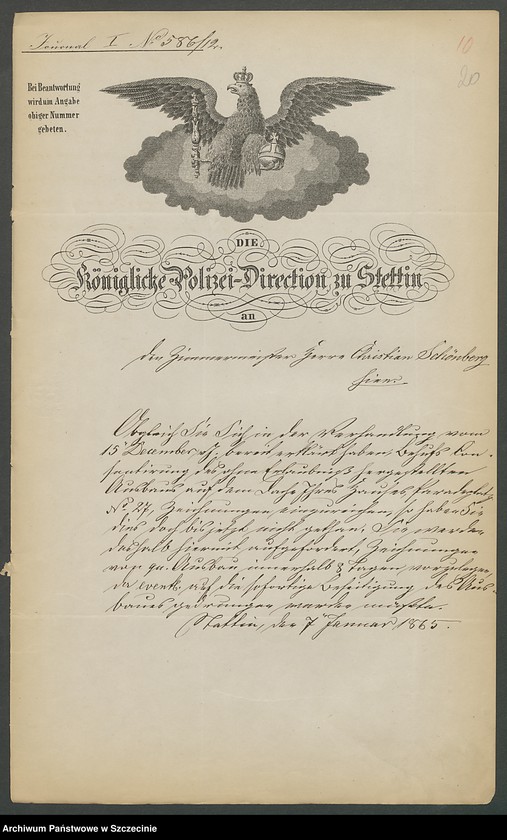 Journal I. No 586/12.
10
20
Bei Beantwortung
wird um Angabe
obiger Nummer
gebeten.
DIE
Königliche Polizei-Direction zu Stettin
an
den Zimmermeister Herrn Christian Schönberg
hier.
Obgleich Sie Sich in der Verhandlung vom
15 December v. J. bereit erklärt haben Behufs Con-
sentirung des ohne Erlaubniß hergestellten
Ausbaus auf dem Dache Ihres Hauses Paradeplatz
No 27, Zeichnungen einzureichen, so haben Sie
dies doch bis jetzt nicht gethan. Sie werden
deshalb hiermit aufgefordert, Zeichnungen
von qu. Ausbau innerhalb 8 Tagen vorzulegen
da event. auf die sofortige Beseitigung des Aus-
baues gedrungen werden müßte.
Stettin, den 7 Januar 1865.
Archiwum Państwowe w Szczecinie